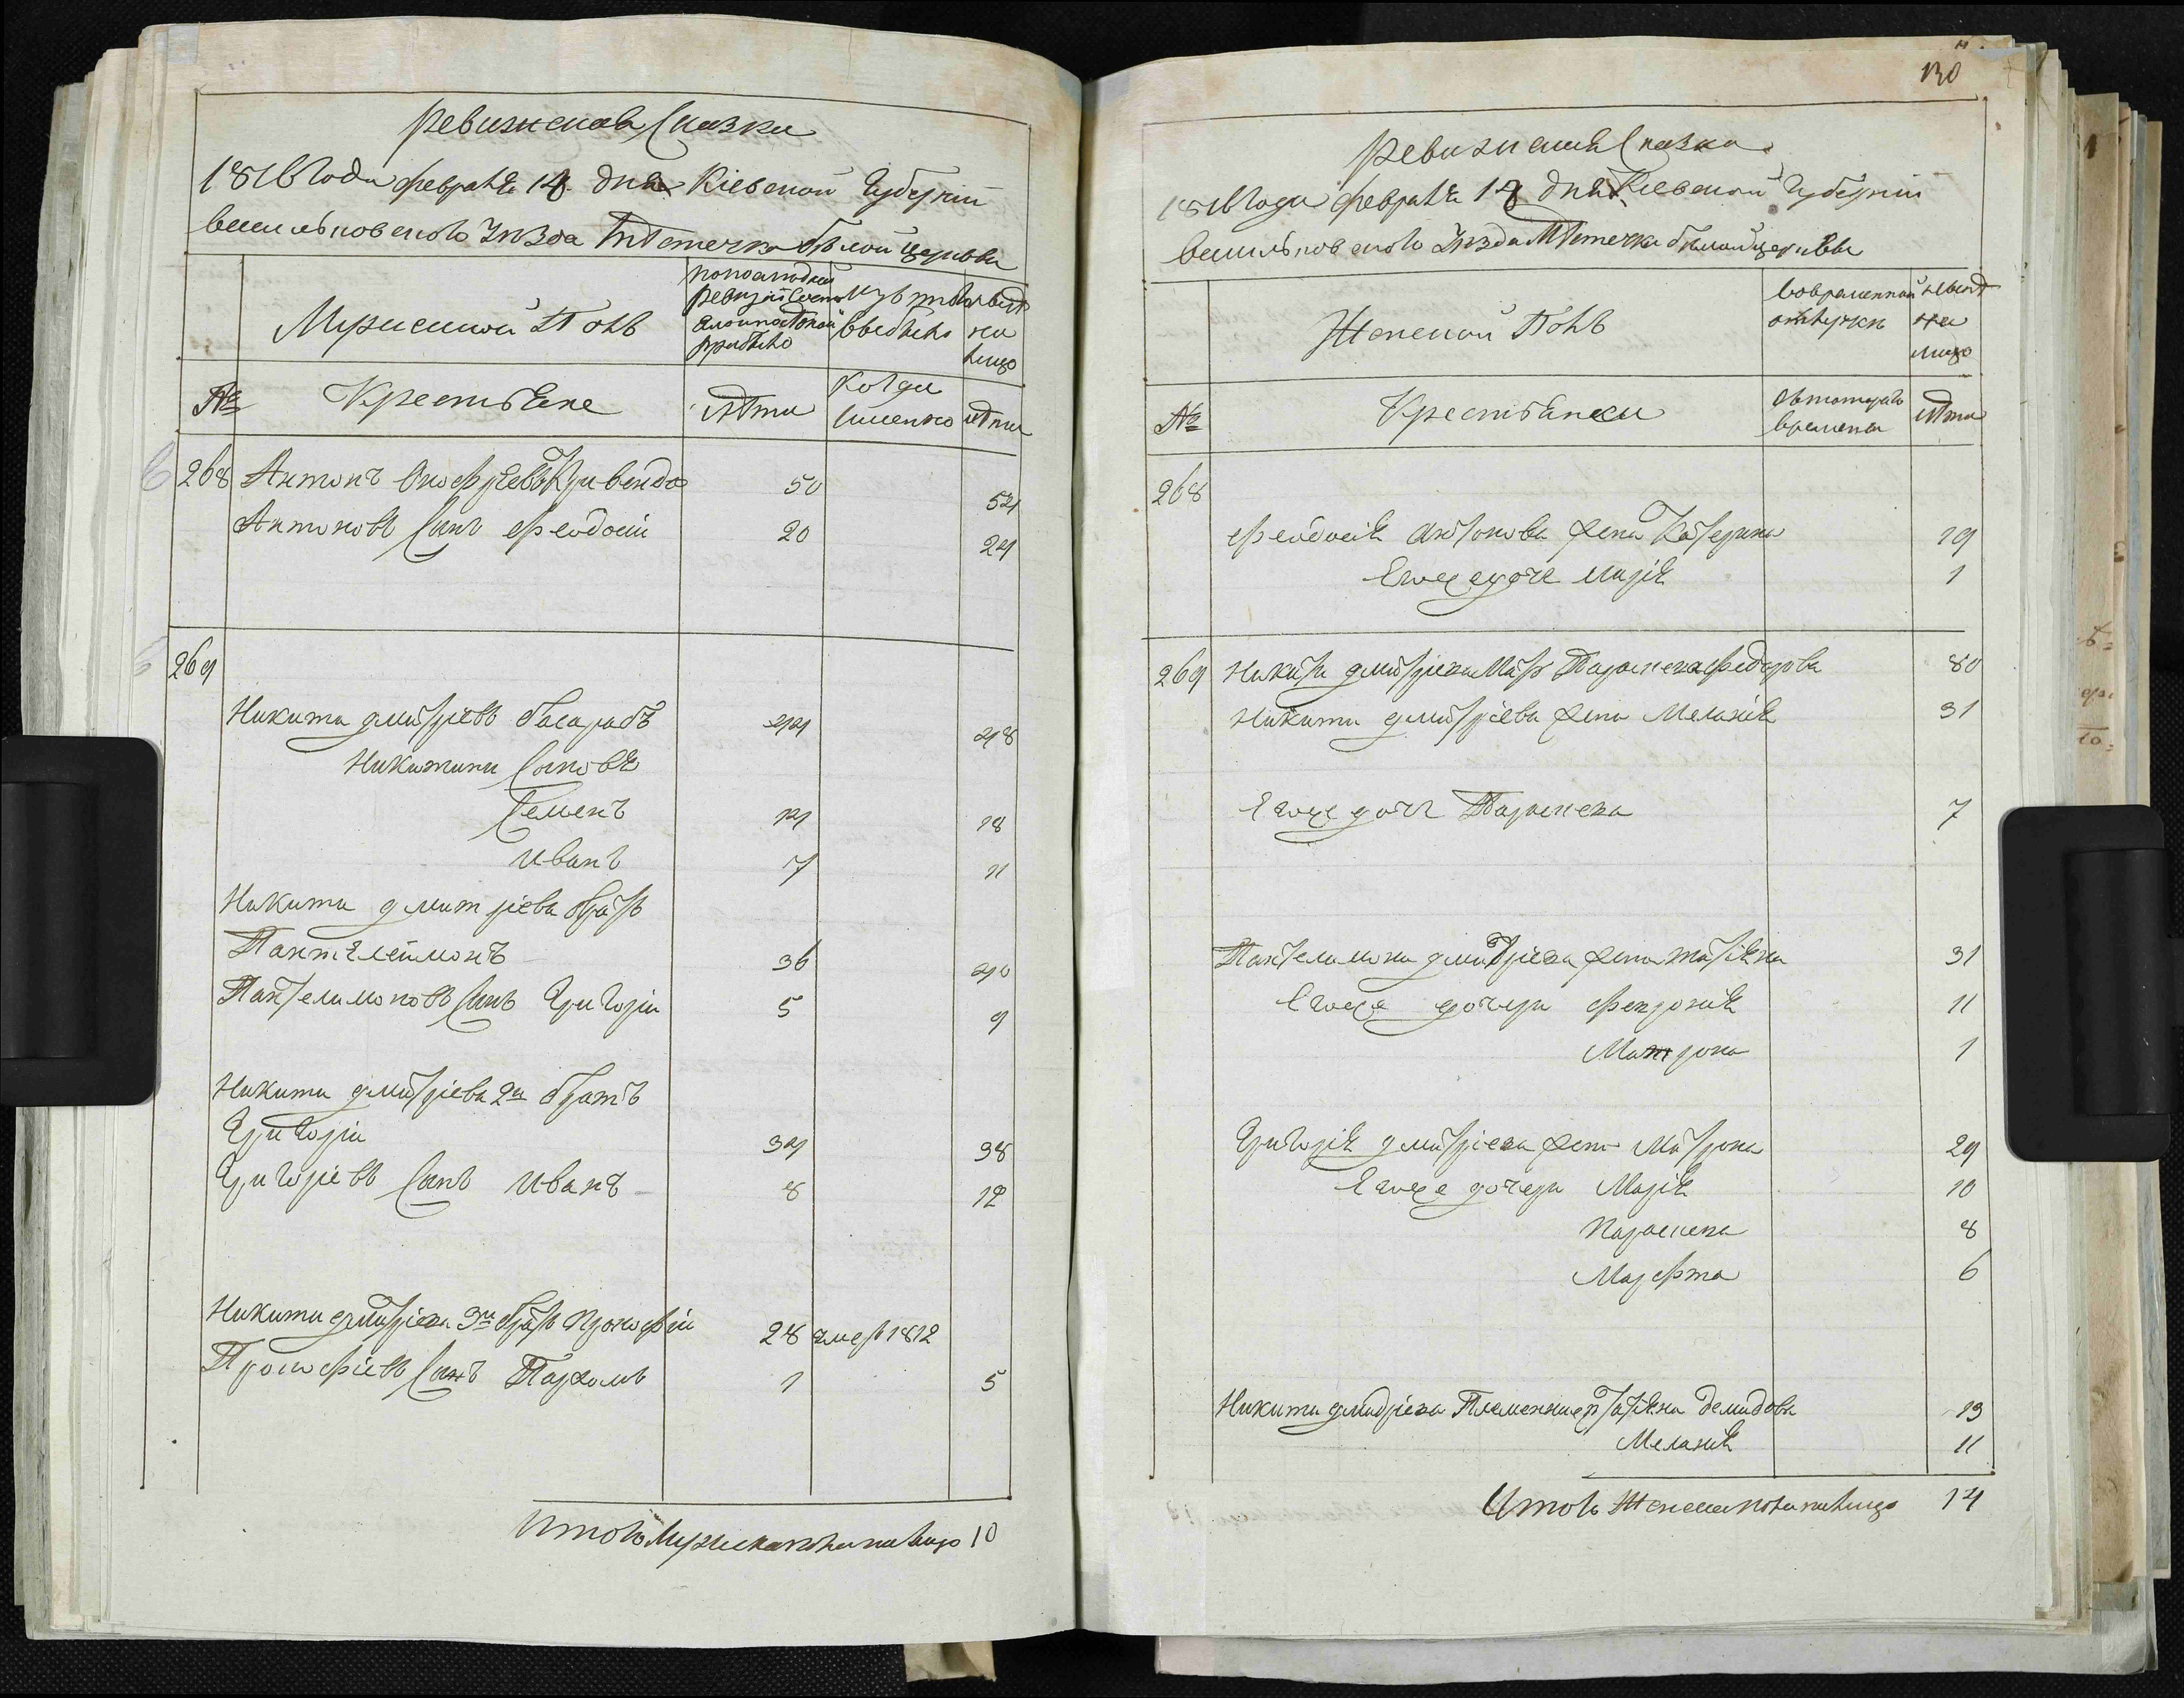 Ревизская Сказка
1816 Года февраля 14 дня Кіевской Губерніи
васильковского уезда Мѣстечка белой церквы
Мужеский Полъ
По последней ревизіи Состояло и после той прибыло
Изъ того выбыло
Ныне на лицо
№
Крестьяне
Лѣта
Когда имянно
лѣта
268 Антонъ Онофріевъ Кривенда 50 54
Антоновъ Сынъ Феодосій 20 24
269
Никита дмитріевъ басарабъ 44 48
Никитины Сыновя
Семенъ 14 18
Иванъ 7 11
Никиты дмитріева братъ
Пантелеймонъ 36 40
Пантелимоновъ Сынъ Григорій 5 9
Никиты дмитріева 2й братъ
Григорій 34 38
Григоріевъ Сынъ Иванъ 8 12
Никиты дмитріева 3й братъ Прокофій 28 умер 1812
Прокофіевъ Сынъ Пархомъ 1 5
Итого Мужеска пола на лицо 10
130
Ревизская Сказка
1816 Года февраля 14 дня Кіевской Губерніи
васильковского уезда Мѣстечка белой церквы
Женской Полъ
Во временной отлучке
Ныне на лицо
№
Крестьянки
Съ которого времени
Лѣта
268
Феодосія Антонова жена Катерина 19
Егоже дочь Марія 1
269 Никиты дмитріева Мать Параскева Федорова 80
Никиты дмитріева жена Меланія 31
Егоже дочь Параскева 7
Пантелимона дмитріева жена татіяна 31
Егоже дочери Февронія 11
Матрона 1
Григорія дмитріева жена Матрона 29
Егоже дочери Марія 10
Параскева 8
Марфта 6
Никиты дмитріева Племянницы татіяна демидова 13
Меланія 11
Итого Женска пола на лицо 14